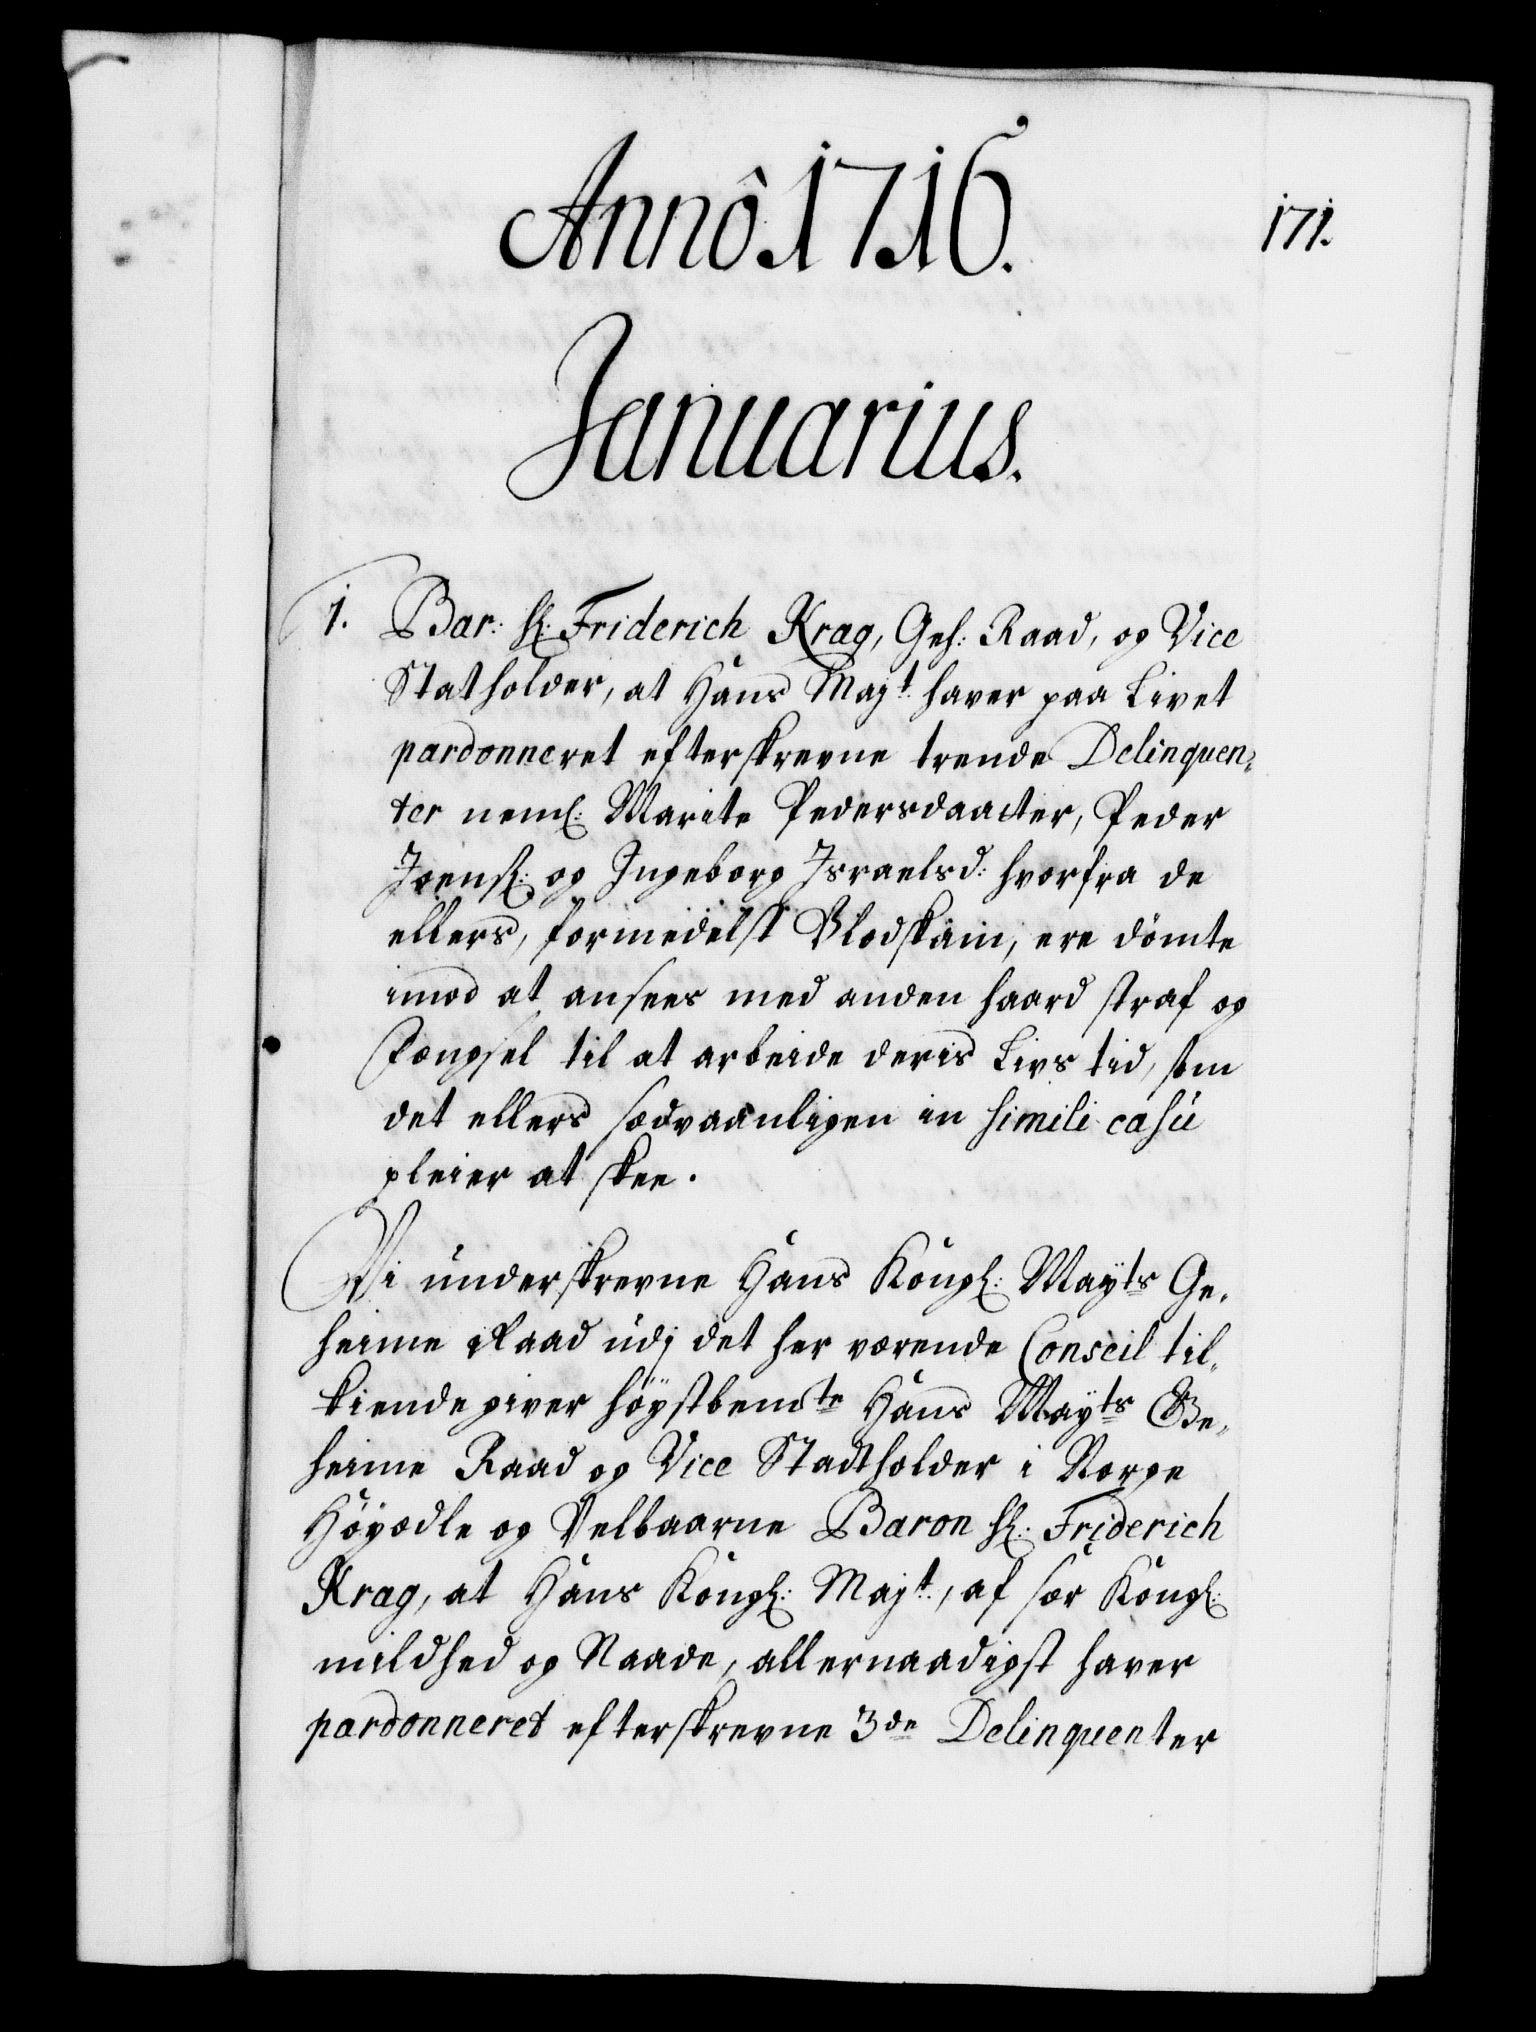 Annô 1716.
171.
Januarius.
1. Bar: H: Friderich Krag, Geh: Raad, og Vice
Statholder, at Hans Majt. haver paa Livet
pardonneret efterskrevne trende Delinquen-
ter neml: Marite Pedersdaatter, Peder
Joens: og Ingeborg Israelsd: hvorfra de
ellers, formedelst Blodskam, ere dömte
imod at ansees med anden haard straf og
Fængsel til at arbeide deris Livs tid, som
det ellers sædvaanligen in simili casu
pleier at skee.
Vi underskrevne Hans Kongl: Mayts Ge-
heime Raad udj det her værende Conseil til-
kiende giver höystbemte Hans Mayts Ge-
heime Raad og Vice Stadtholder i Norge
Höyædle og Velbaarne Baron H: Friderich
Krag, at Hans Kongl: Majt., af sær Kongl:
mildhed og Naade, allernaadigst haver
pardonneret efterskrevne 3de Delinquenter